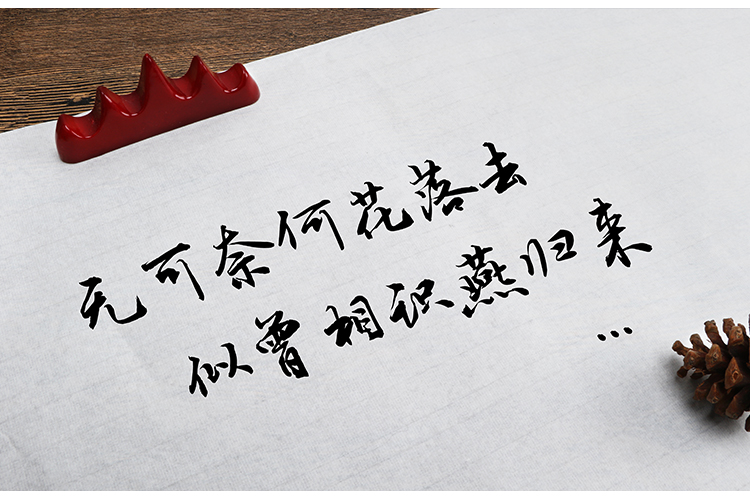 无可奈何花落去
似曾相识燕归来
...